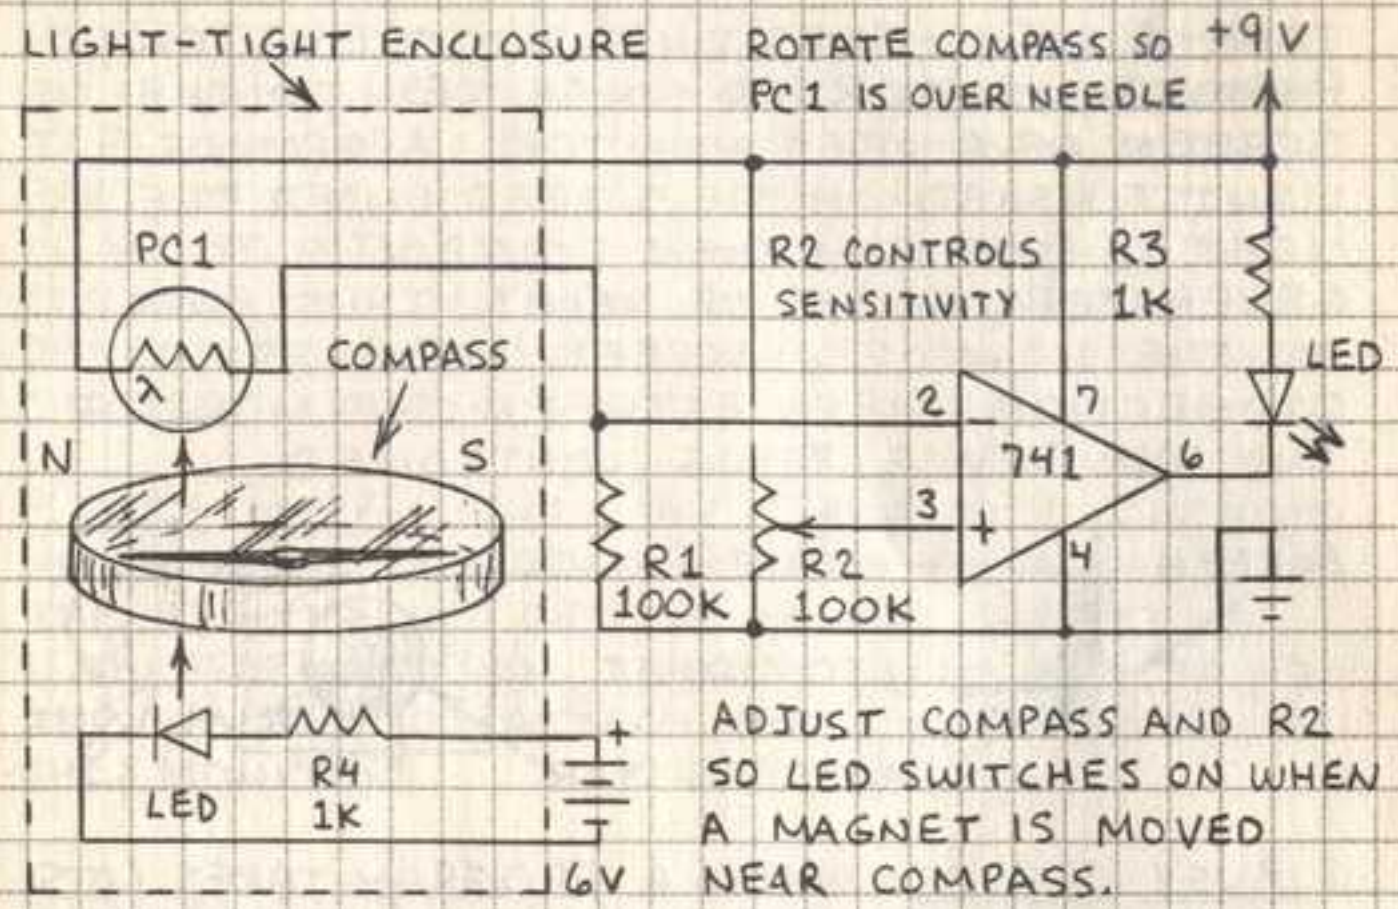 LIGHT-TIGHT ENCLOSURE
ROTATE COMPASS SO
PC1 IS OVER NEEDLE
+9V
PC1
λ
COMPASS
N
S
R2 CONTROLS
SENSITIVITY
R3
1K
LED
2
-
7
741
6
3
+
4
R1
100K
R2
100K
LED
R4
1K
+
6V
ADJUST COMPASS AND R2
SO LED SWITCHES ON WHEN
A MAGNET IS MOVED
NEAR COMPASS.